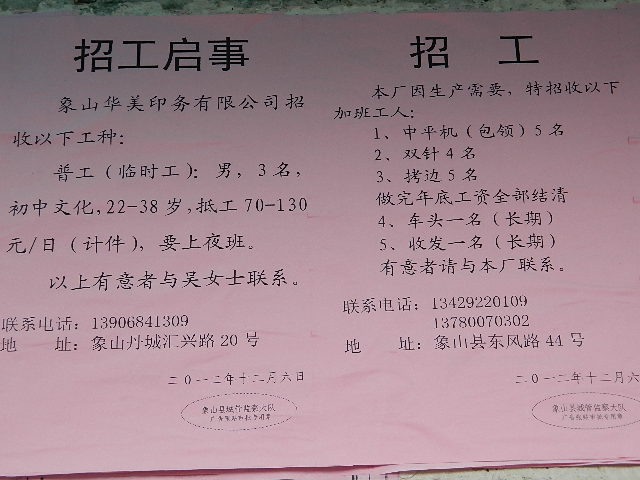 招工启事
象山华美印务有限公司招
收以下工种：
普工（临时工）：男，3名，
初中文化，22-38岁，抵工70-130
元/日（计件），要上夜班。
以上有意者与吴女士联系。
联系电话：13906841309
地 址：象山丹城汇兴路20号
二〇一二年十二月六日
象山县城管监察大队
广告张贴审批专用章
招 工
本厂因生产需要，特招收以下
加班工人：
1、中平机（包领）5名
2、双针4名
3、拷边5名
做完年底工资全部结清
4、车头一名（长期）
5、收发一名（长期）
有意者请与本厂联系。
联系电话：13429220109
13780070302
地 址：象山县东风路44号
二〇一二年十二月六
象山县城管监察大队
广告张贴审批专用章